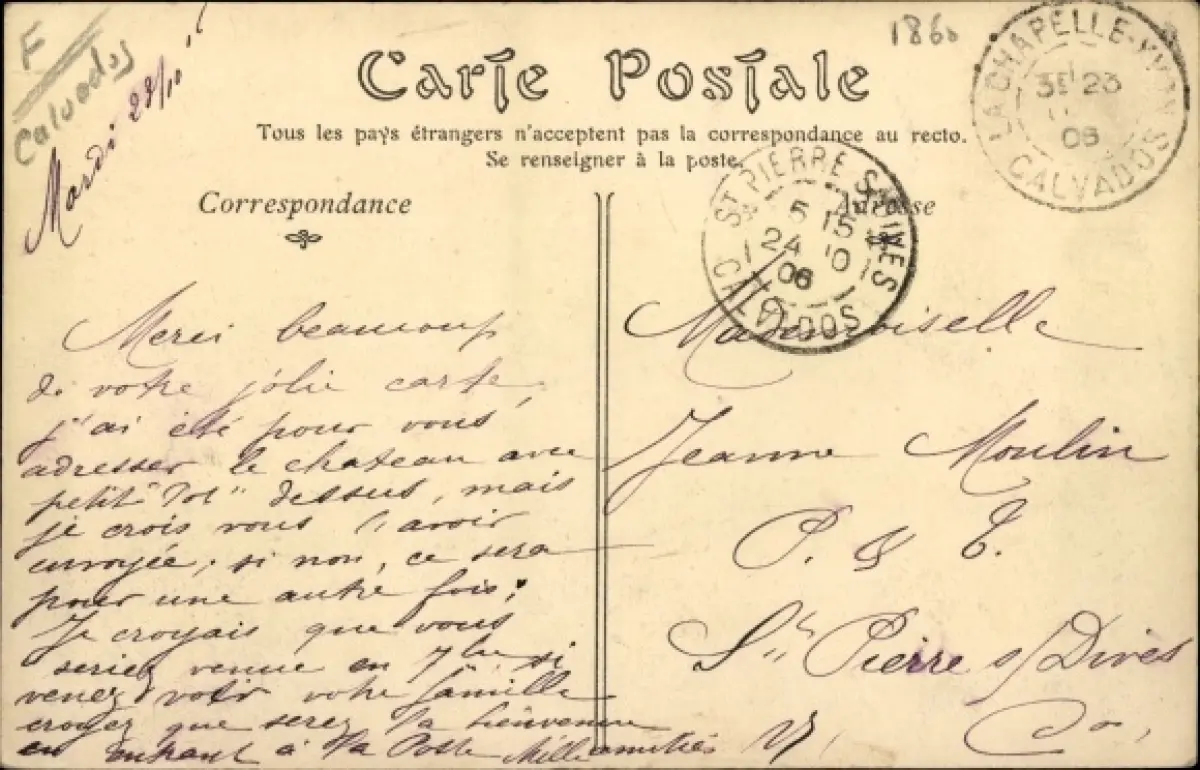 F
Calvados
Mardi 23/10
1860
Carte Postale
Tous les pays étrangers n'acceptent pas la correspondance au recto.
Se renseigner à la poste.
LA CHAPELLE-YVON
3E 23
06
CALVADOS
ST PIERRE S DIVES
5 15
24 10
06
CALVADOS
Correspondance
Adresse
Merci beaucoup
de votre jolie carte,
j'ai été pour vous
adresser le chateau avec
petit "Tot" dessus, mais
je crois vous l'avoir
envoyée, si non, ce sera
pour une autre fois;
Je croyais que vous
seriez venue en 7bre si
venez voir votre famille
croyez que serez la bienvenue
en entrant à la Poste Mille amitiés
Mademoiselle
Jeanne Moulin
P. & T.
St Pierre s/Dives